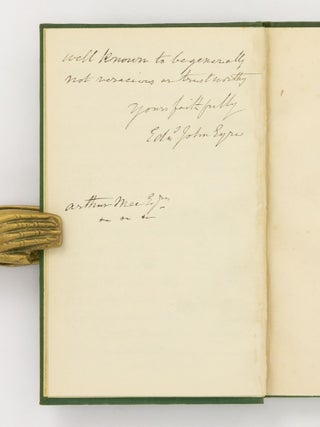 well known to be generally
not veracious or trustworthy
Yours faithfully
Edwd John Eyre
Arthur Mee Esqre